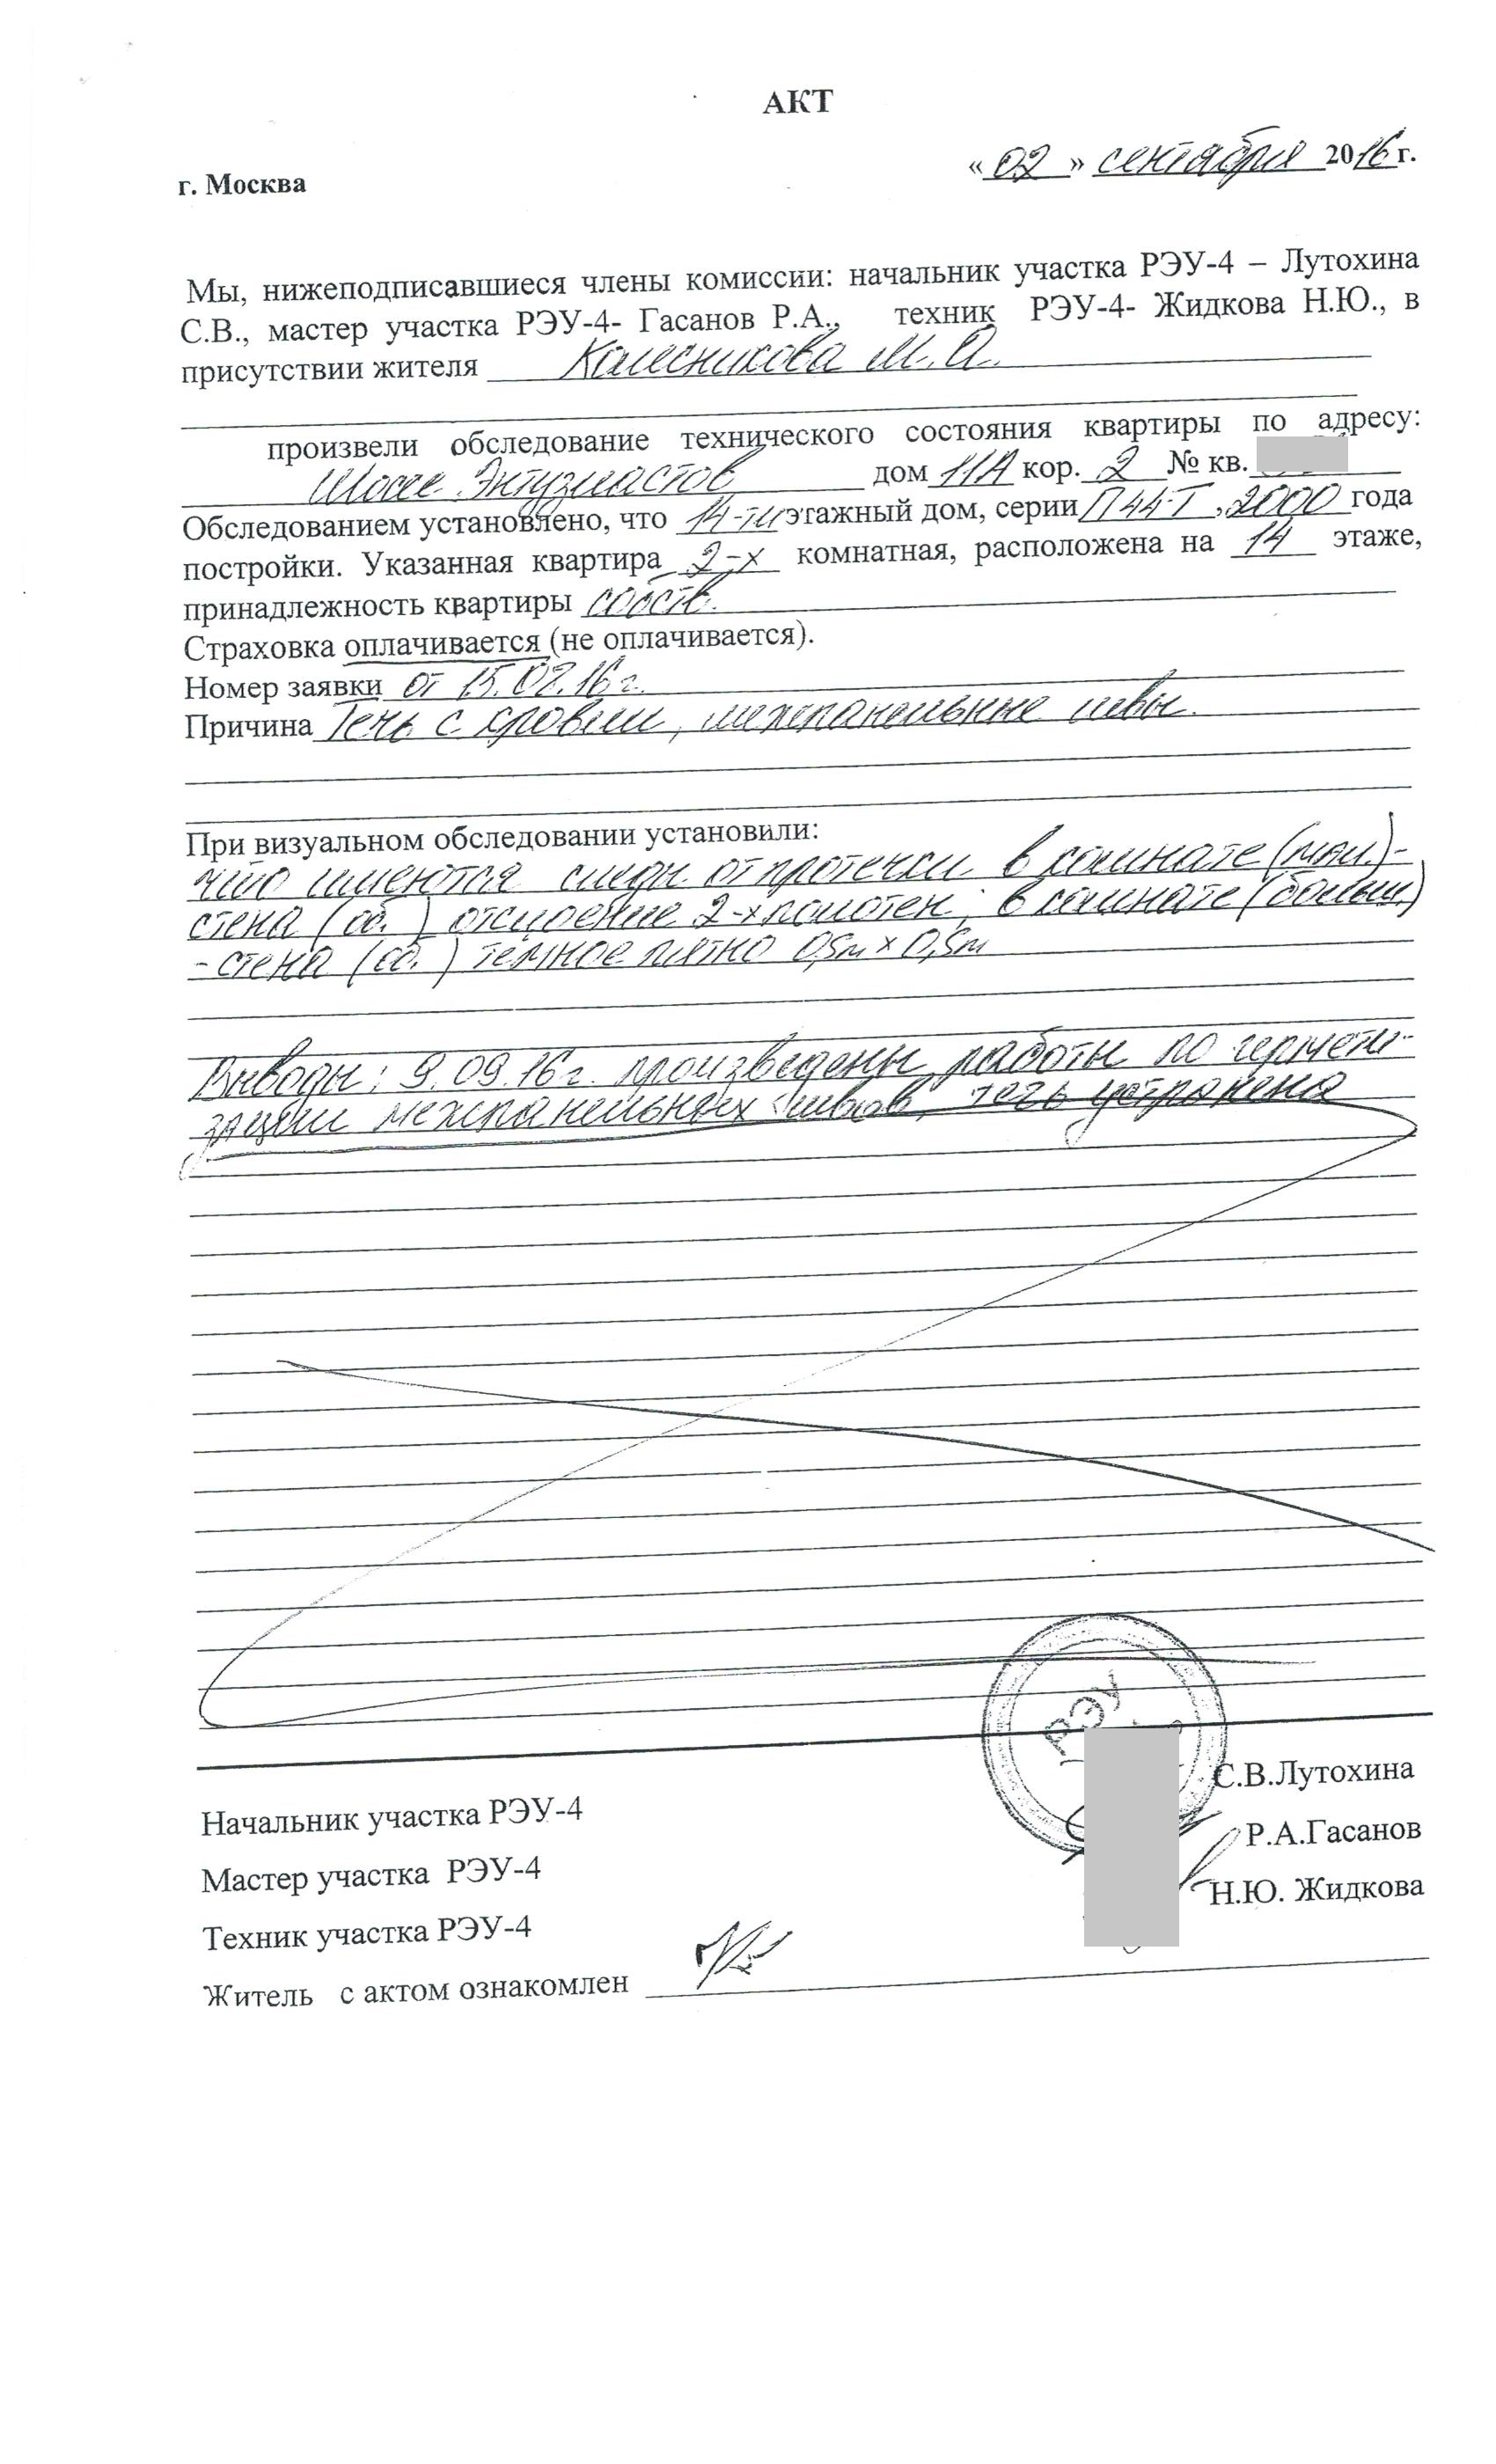 АКТ
г. Москва
«02» сентября 2016 г.
Мы, нижеподписавшиеся члены комиссии: начальник участка РЭУ-4 – Лутохина
С.В., мастер участка РЭУ-4- Гасанов Р.А., техник РЭУ-4- Жидкова Н.Ю., в
присутствии жителя Колесникова М.А.
произвели обследование технического состояния квартиры по адресу:
Шоссе Энтузиастов дом 11А кор. 2 № кв.
Обследованием установлено, что 14-ти этажный дом, серии П44-Т, 2000 года
постройки. Указанная квартира 2-х комнатная, расположена на 14 этаже,
принадлежность квартиры собств.
Страховка оплачивается (не оплачивается).
Номер заявки от 15.07.16 г.
Причина Течь с кровли, межпанельные швы.
При визуальном обследовании установили:
что имеются следы от протечки в комнате (мал.)-
стена (об.) отслоение 2-х полотен; в комнате (больш.)
- стена (об.) темное пятно 0,5м × 0,5м
Выводы: 9.09.16 г. произведены работы по гермети-
зации межпанельных швов, течь устранена
РЭУ
Начальник участка РЭУ-4 С.В.Лутохина
Мастер участка РЭУ-4 Р.А.Гасанов
Техник участка РЭУ-4 Н.Ю. Жидкова
Житель с актом ознакомлен